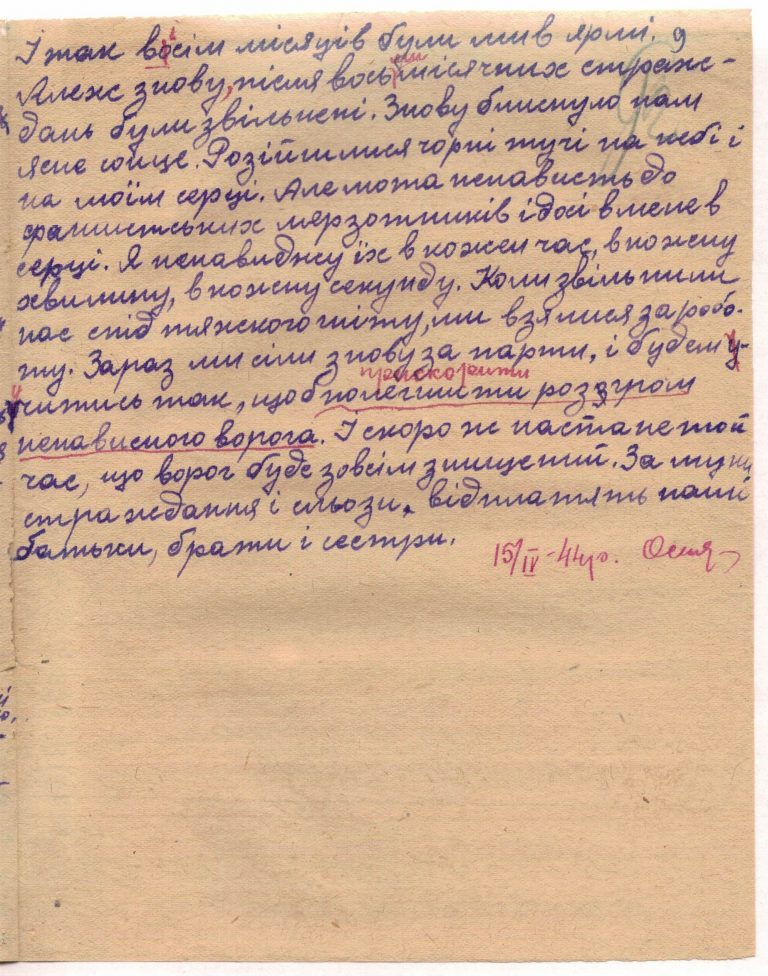 І так восім місяців були ми в ярмі.
Алеж знову, після восьмимісячних страж-
дань були звільнені. Знову блиснуло нам
ясне сонце. Розійшлися чорні тучі на небі і
на моїм серці. Але люта ненависть до
фашистських мерзотників і досі в мене в
серці. Я ненавиджу їх в кожен час, в кожну
хвилину, в кожну секунду. Коли звільнили
нас спід тяжкого гніту, ми взялися за робо-
ту. Зараз ми сіли знову за парти, і будем у-
прискорити
читись так, щоб полегшити розгром
ненависного ворога. І скоро ж настане той
час, що ворог буде зовсім знищений. За муки
страждання і сльози, відплатять наші
батьки, брати і сестри.
15/IV-44р.